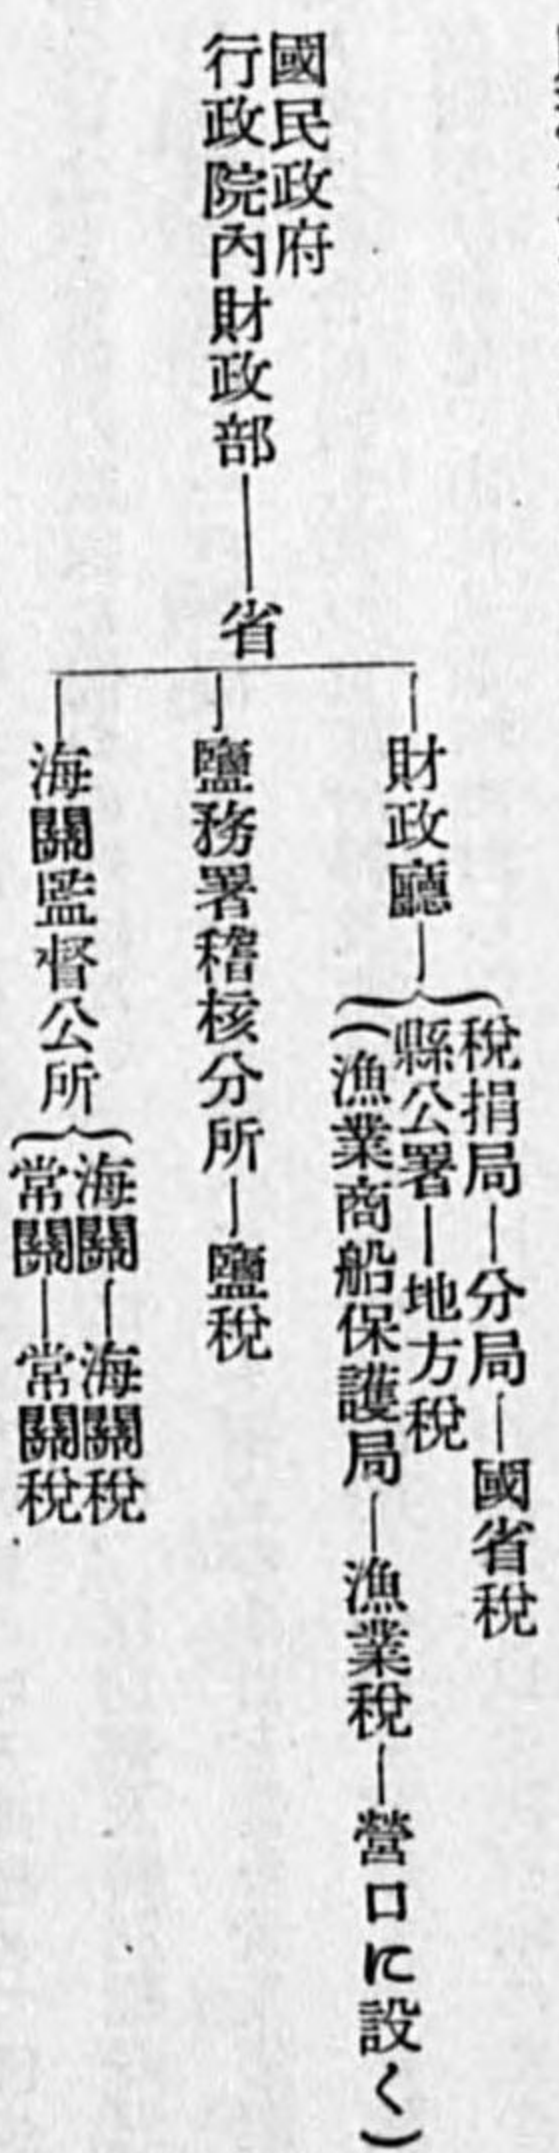 國民政府
行政院內財政部——省
財政廳—
稅捐局—分局—國省稅
縣公署—地方稅
(漁業商船保護局—漁業稅—營口に設く)
鹽務署稽核分所—鹽稅
海關監督公所
海關—海關稅
常關—常關稅